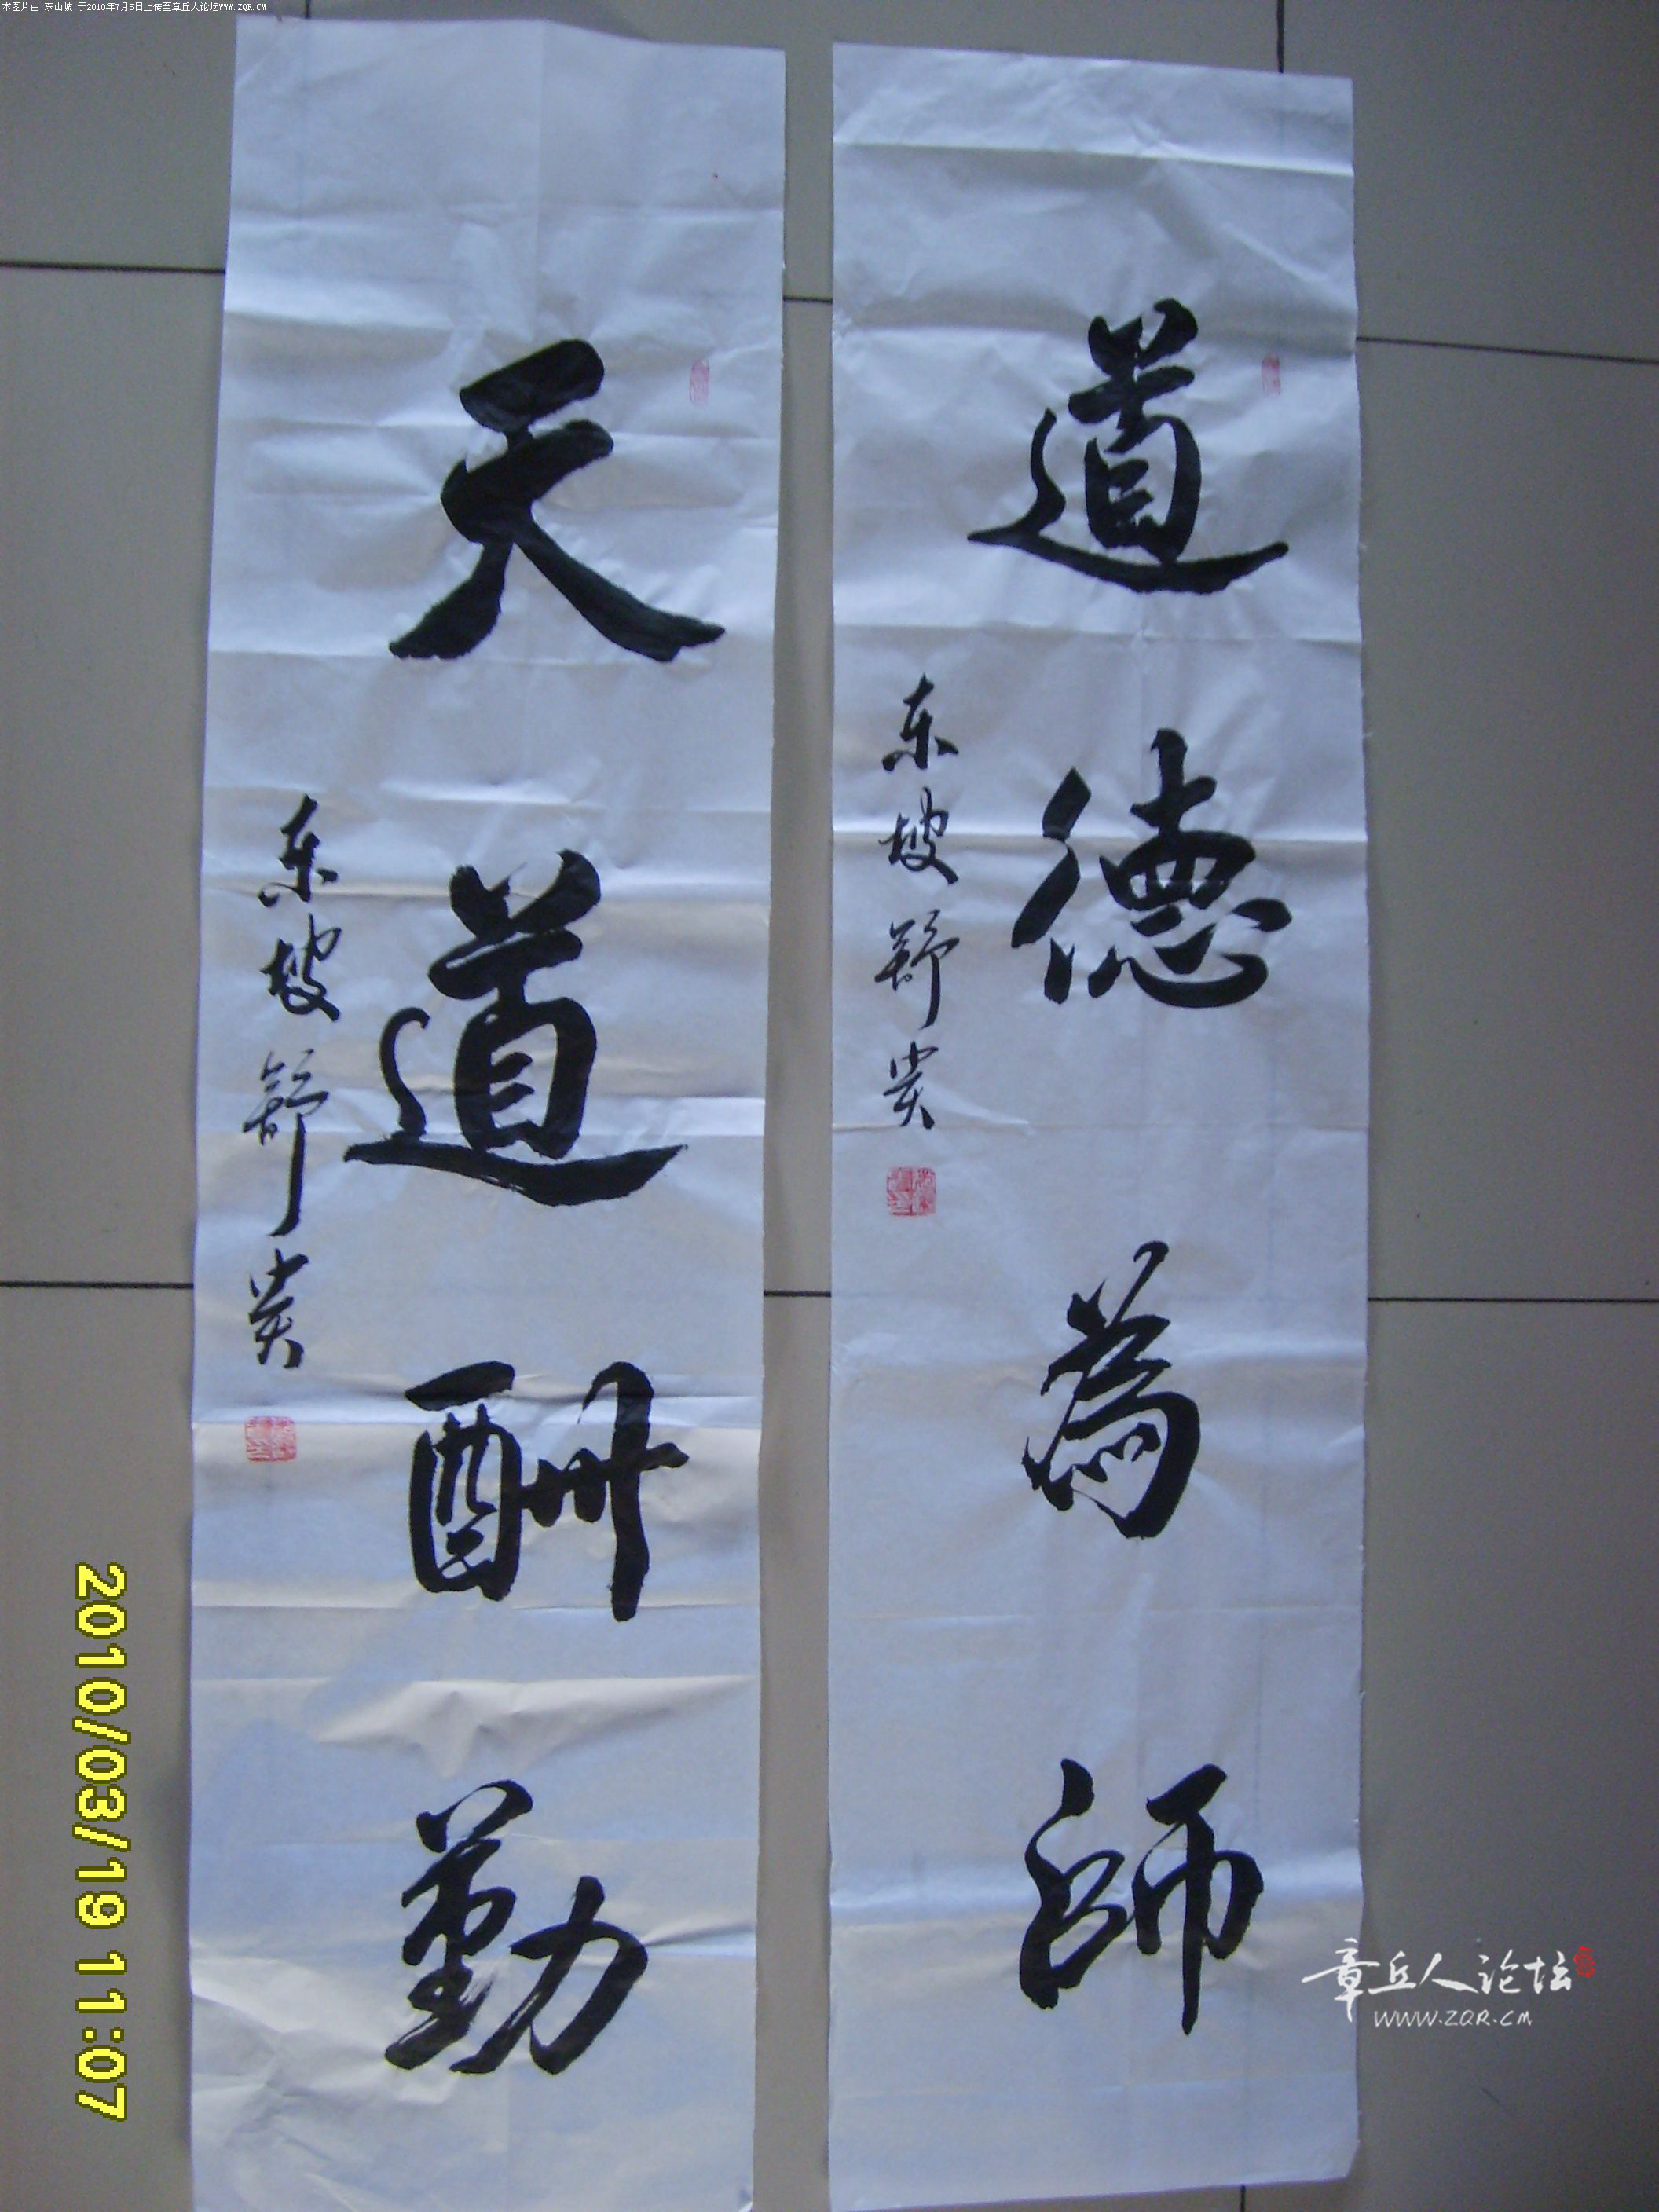 本图片由 东山坡 于2010年7月5日上传至章丘人论坛WWW.ZQR.CM
道德為师
东坡舒贵
天道酬勤
东坡舒贵
2010/03/19 11:07
章丘人论坛
WWW.ZQR.CM